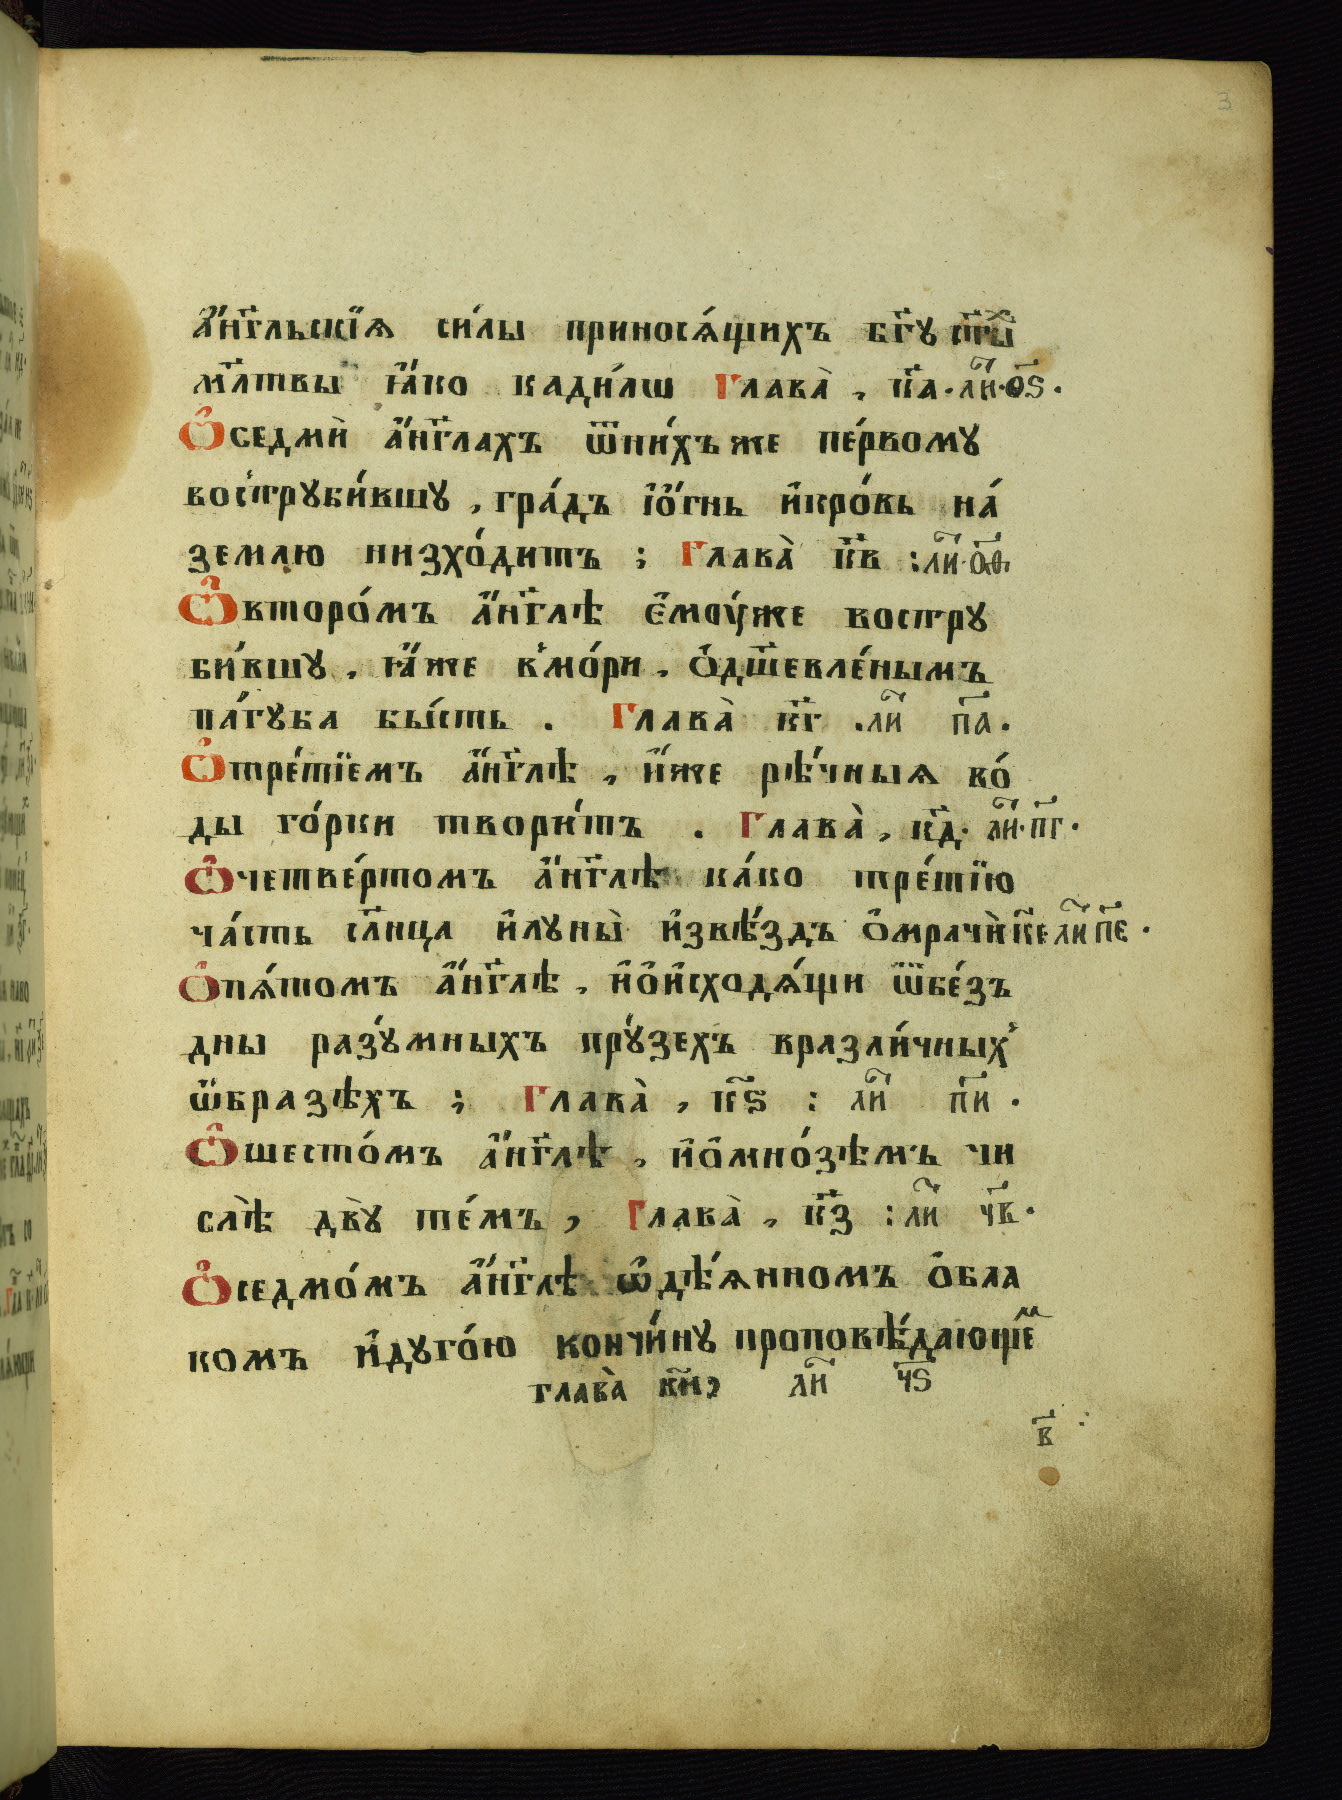 3
а҆́нг҃льскїѧ си́лы приносѧ́щихъ бг҃у ст҃ы́хъ
мл҃твы ꙗ҆́ко кади́лѡ Глава̀ , к҃а · ли҃ · ѻ҃ѕ ·
Ѡ҆седмѝ а҆́нг҃лахъ ѿни́хъже пе́рвому
вострꙋби́вшꙋ , гра́дъ і҆ѻ҆́гнь и҆кро́вь на́
землю низхо́дитъ ; Глава̀ к҃в : ли҃ · ѻ҃ѳ ·
Ѡ҆второ́мъ а҆́нг҃лѣ є҆моу́же востру
би́вшꙋ , ꙗ҆́же в̾мо́ри , ѻ҆дш҃евле́нымъ
па́гꙋба бы́сть . Глава̀ к҃г . ли҃ п҃а .
Ѡ҆тре́тїемъ а҆́нг҃лѣ , и҆́же рѣ́чныѧ во́
ды го́рки твори́тъ . Глава̀ , к҃д · ли҃ · п҃г ·
Ѡ҆четве́ртомъ а҆́нг҃лѣ ка́ко тре́тїю
ча́сть сл҃нца и҆луны̀ и҆звѣ́здъ ѻ҆мрачѝ к҃е ли҃ п҃є ·
Ѡ҆пѧ́томъ а҆́нг҃лѣ , и҆ѻ҆и҆сходѧ́щи ѿбе́зъ
дны разу́мныхъ прꙋ́зехъ вразли́чных̾
ѿбразѣхъ ; Глава̀ , к҃ѕ : ли҃ п҃и .
Ѡ҆шесто́мъ а҆́нг҃лѣ , и҆ѻ҆мно́зѣмъ чи
слѣ̀ двꙋ̀ те́мъ , Глава̀ , к҃з : ли҃ ч҃в ·
Ѡ҆седмо́мъ а҆́нг҃лѣ ѡ҆дѣ́ѧнномъ ѻ҆бла
комъ и҆дуго́ю кончи́нꙋ проповѣ́дающїем
глава̀ к҃и , ли҃ ч҃ѕ
в҃